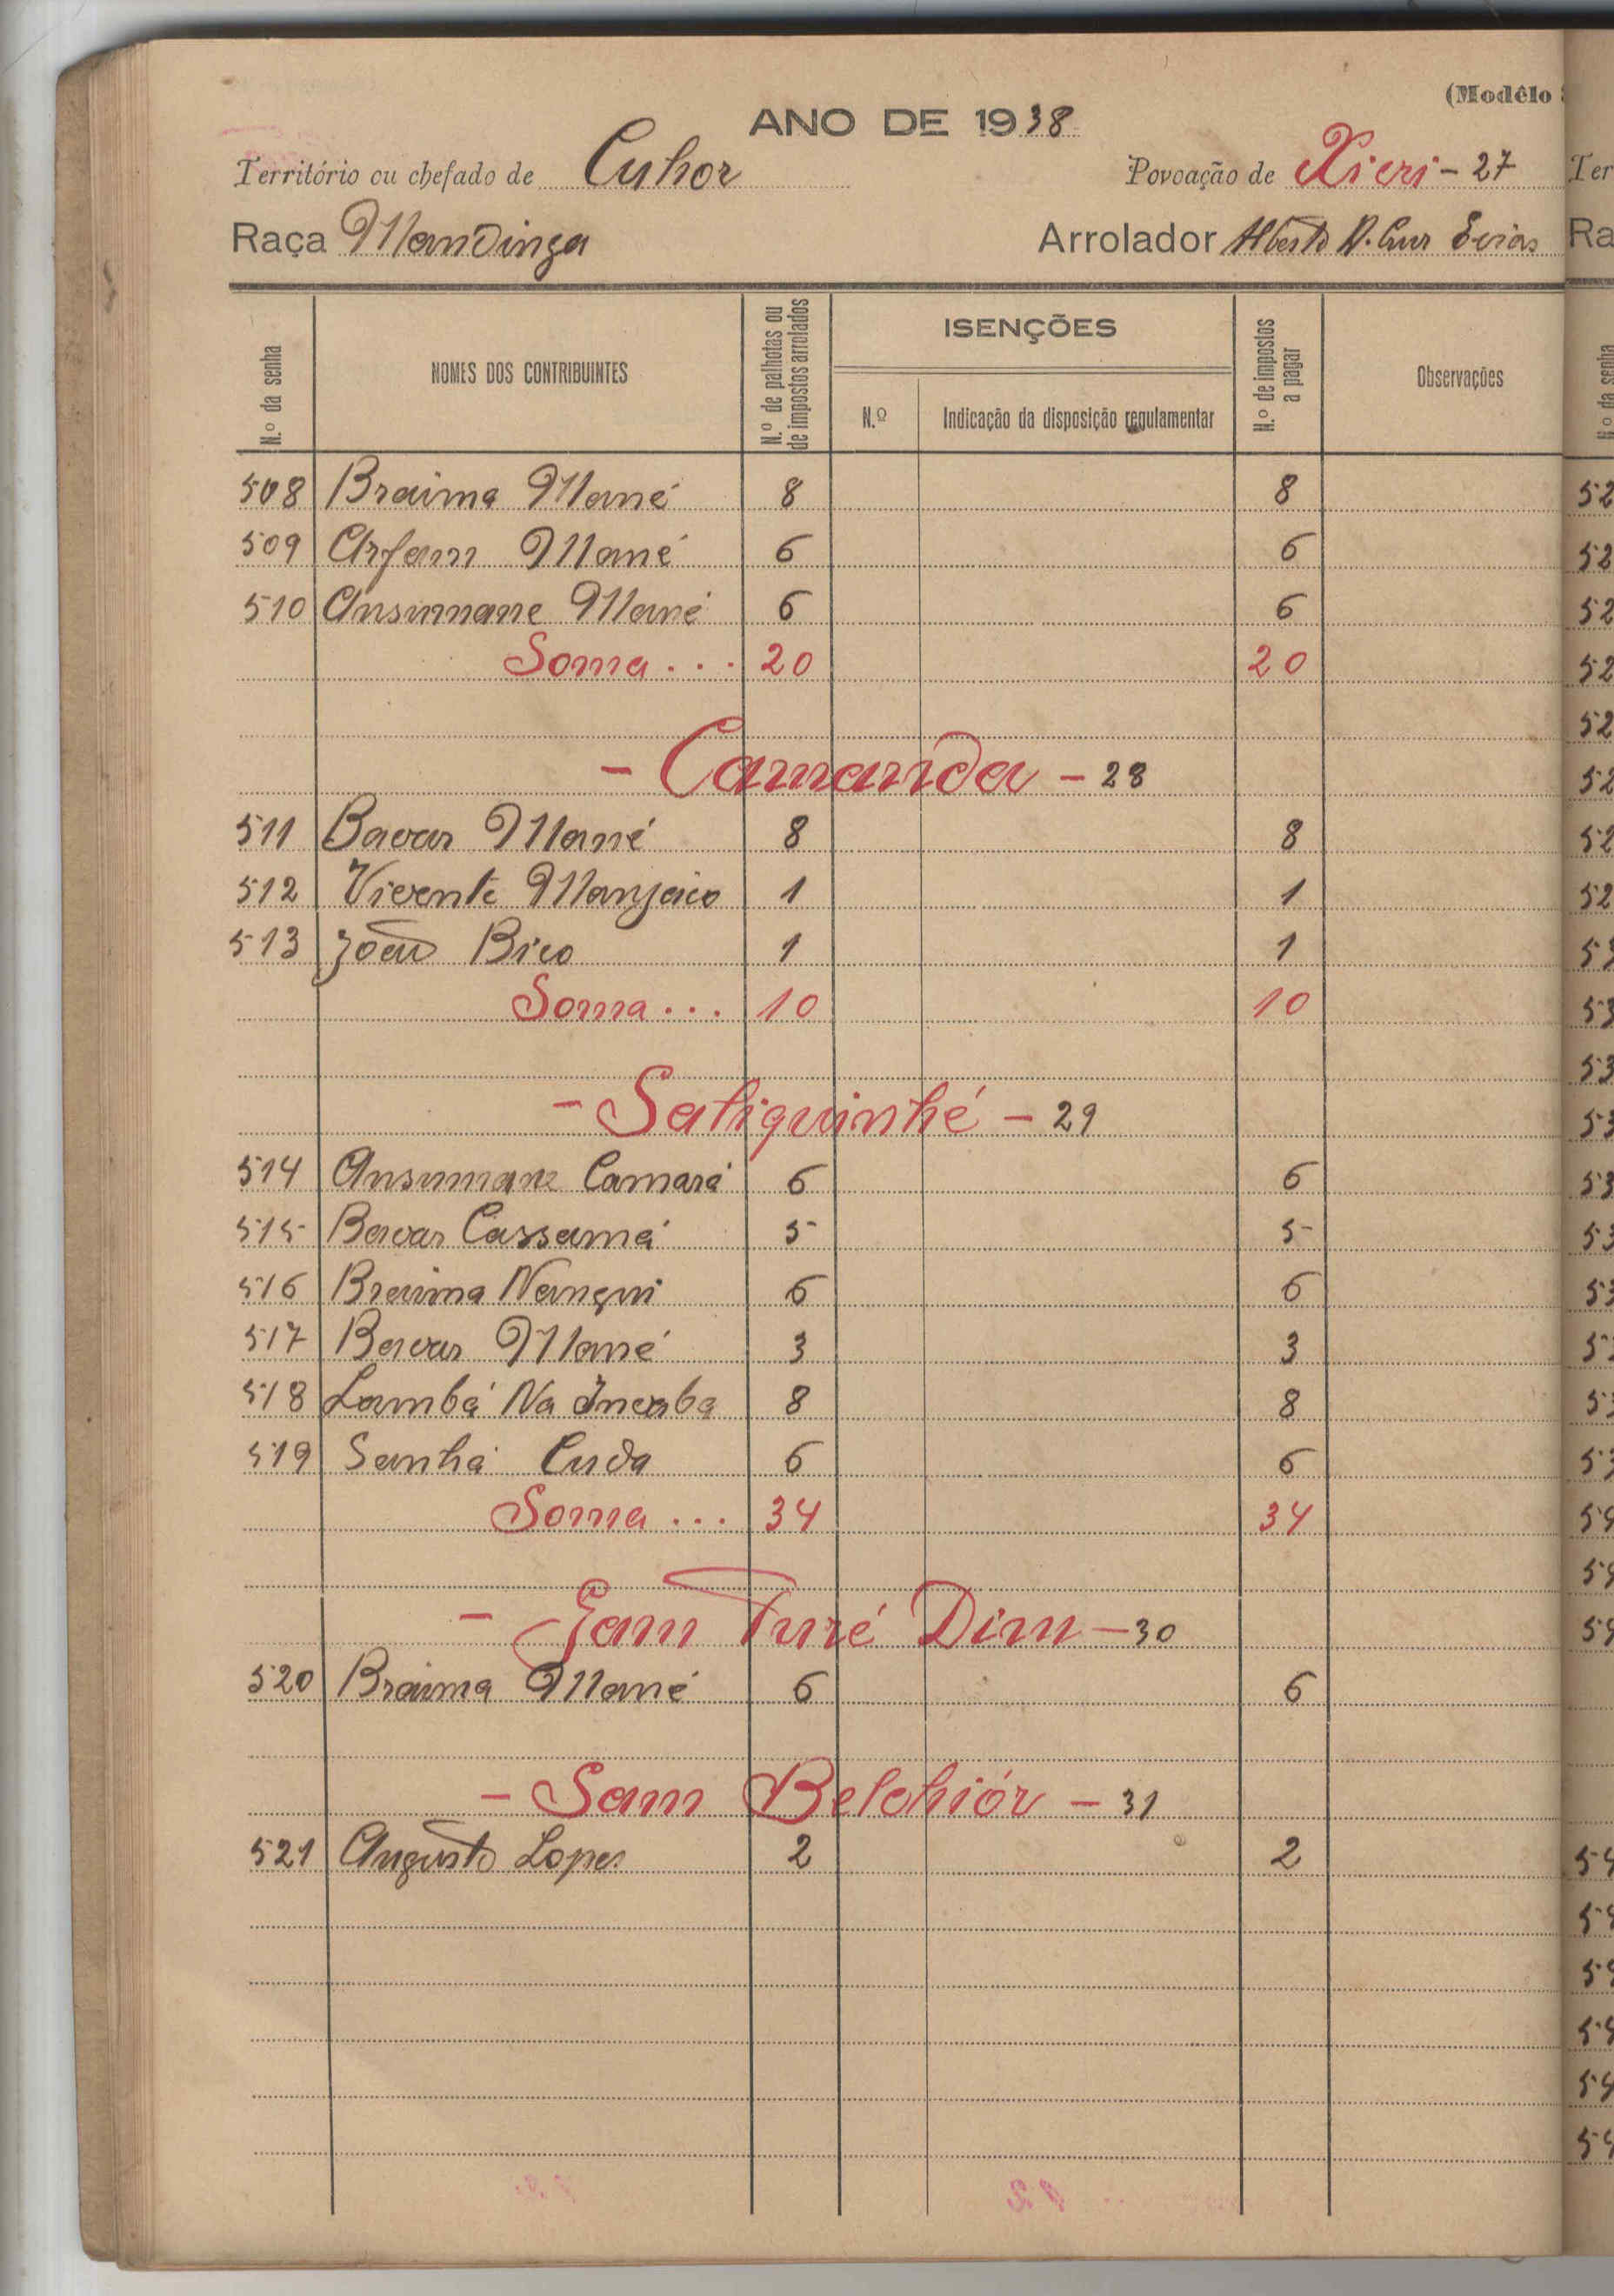 (Modêlo
ANO DE 1938
Território ou chefado de Cuhor
Povoação de Xieri - 27
Raça Mandinga
Arrolador Alberto
N.º da senha
NOMES DOS CONTRIBUINTES
N.º de palhotas ou de impostos arrolados
ISENÇÕES
N.º
Indicação da disposição regulamentar
N.º de impostos a pagar
Observações
508 Braima Mané 8 8
509 Arfam Mané 6 6
510 Ansumane Mané 6 6
Soma ... 20 20
- Camanida - 28
511 Bacar Mané 8 8
512 Vicente Manjaico 1 1
513 João Bico 1 1
Soma ... 10 10
- Satiquinhé - 29
514 Ansumane Camará 6 6
515 Bacar Cassamá 5 5
516 Braima Nanqui 6 6
517 Bacar Mané 3 3
518 Lambá Na 8 8
519 Sanhá Cuda 6 6
Soma ... 34 34
- Gam Turé Dim - 30
520 Braima Mané 6 6
- Sam Belchiór - 31
521 Augusto Lopes 2 2